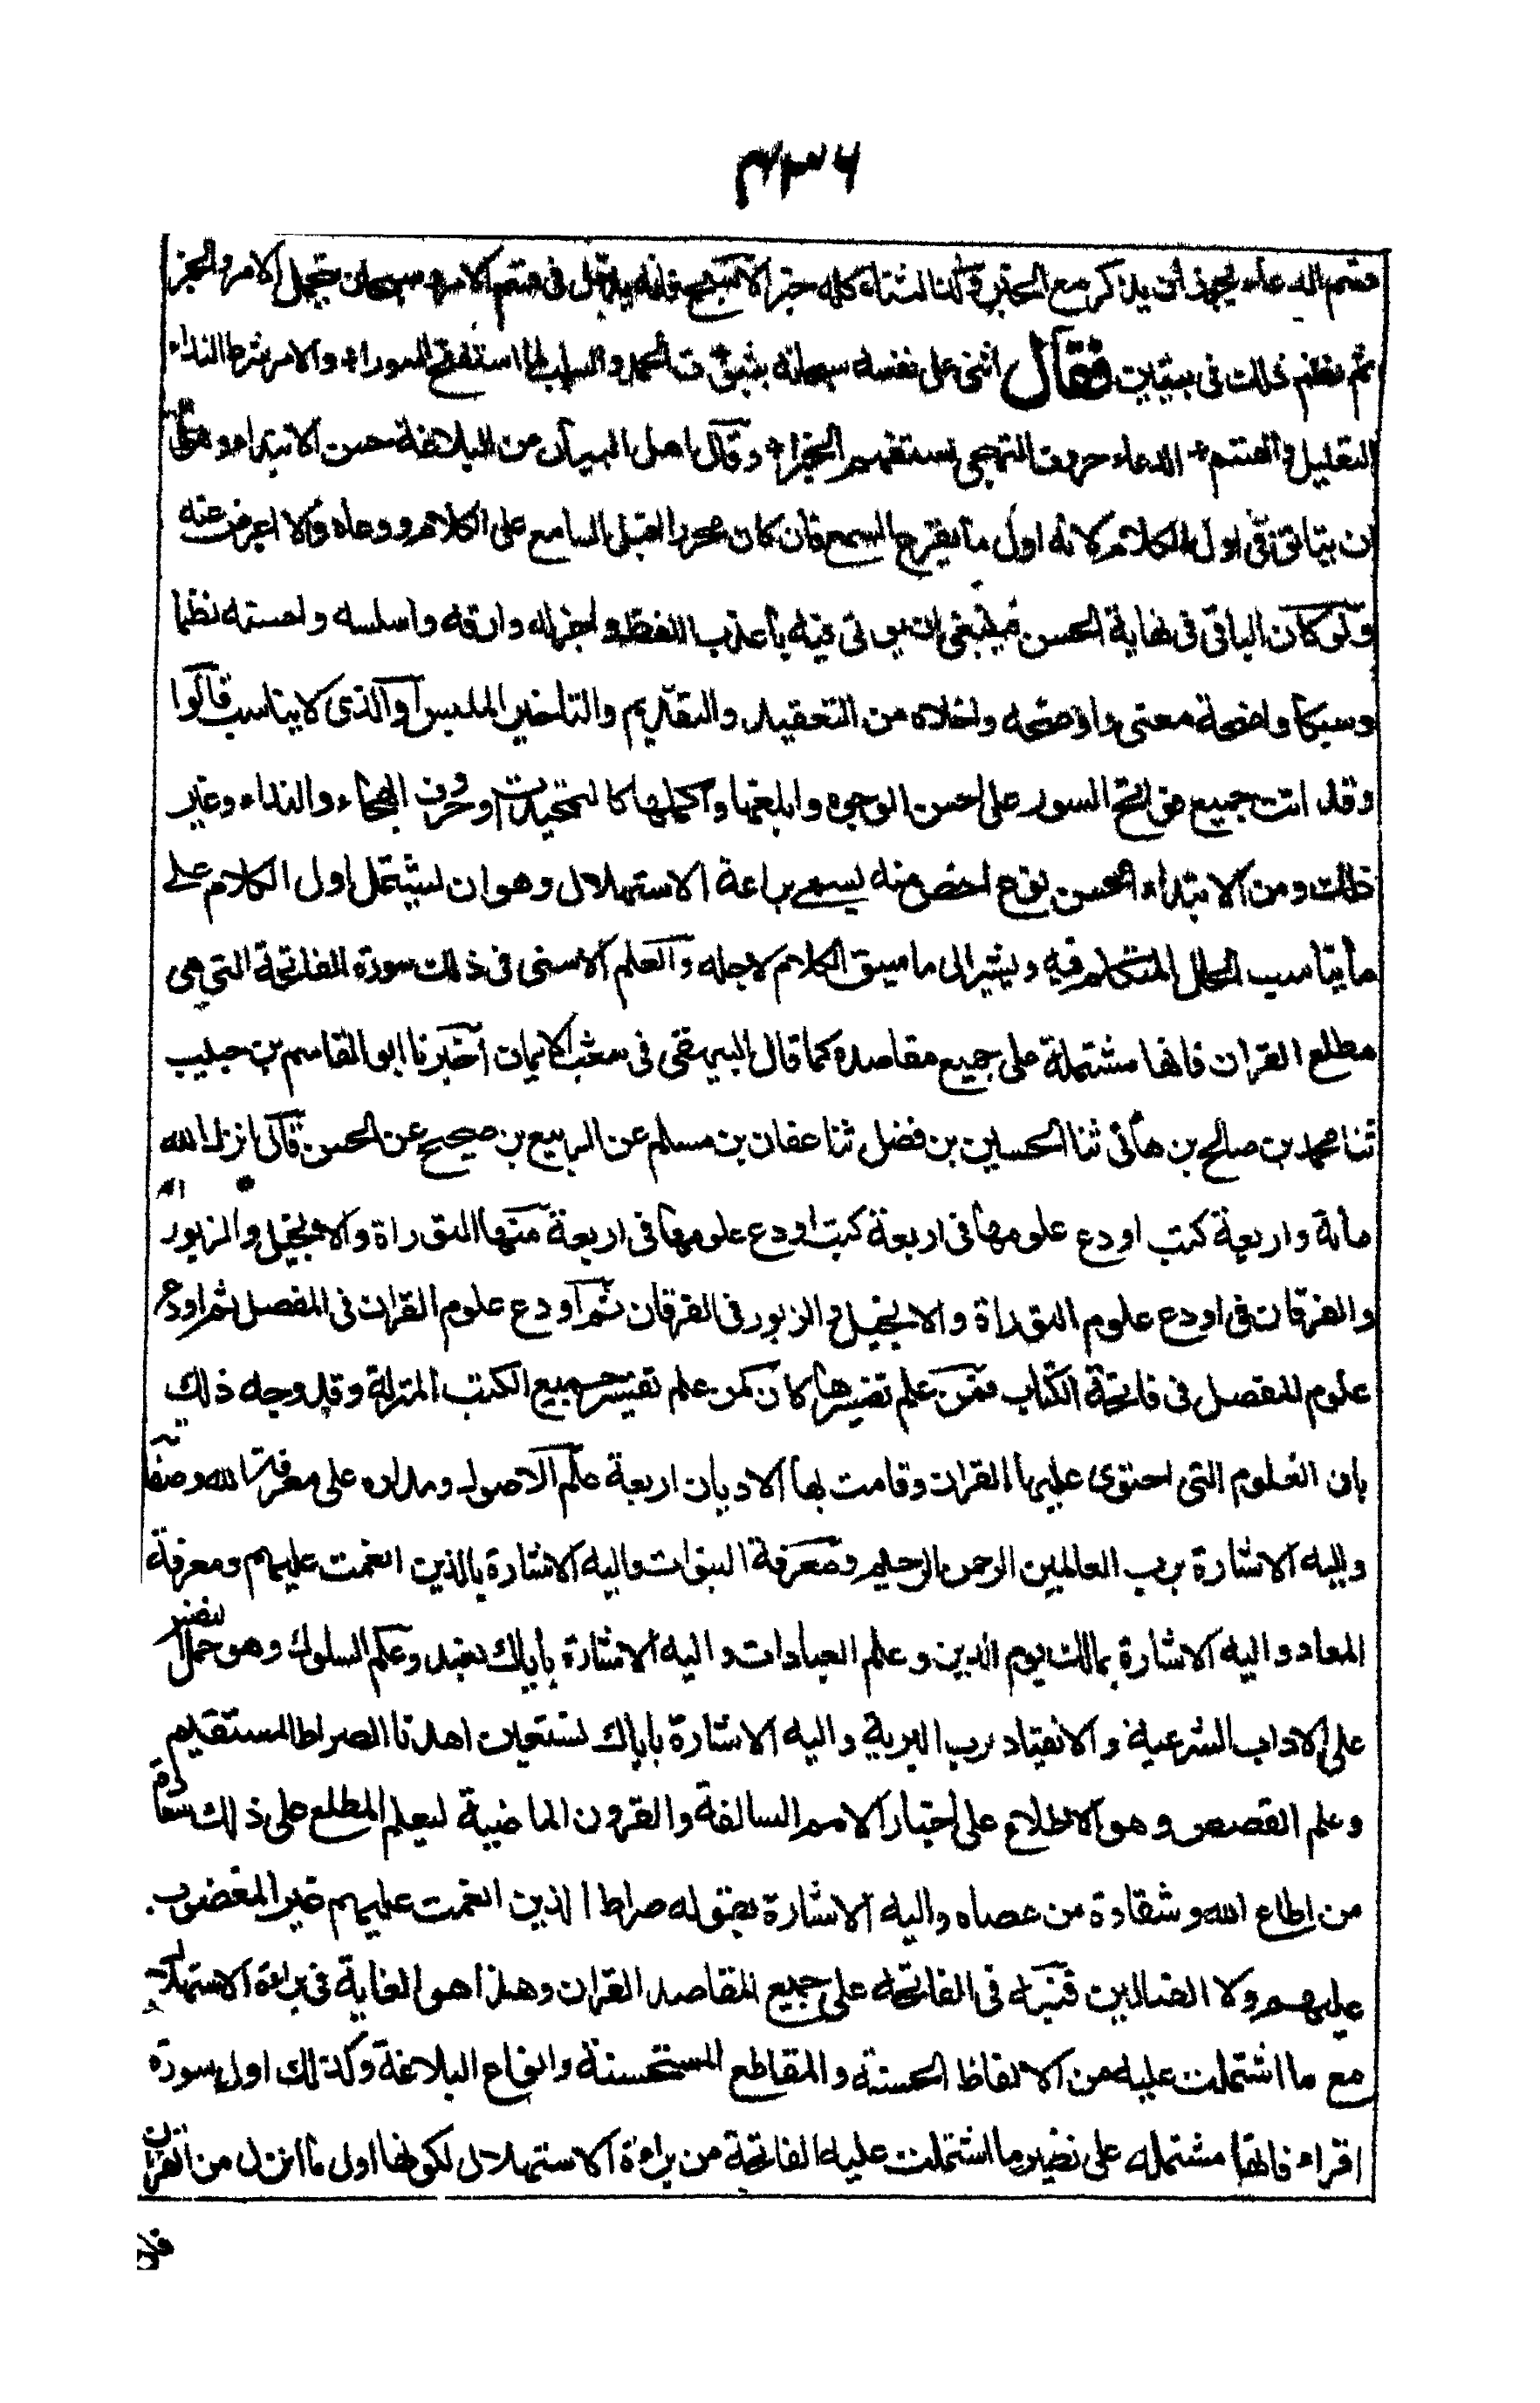 ٤٣٦
قسم الدعاء يجوز أن يذكر مع الخبر وكذا الثناء كله خبر الا سبح فانه يدخل في قسم الامر و سبحان يحتمل الامر والخبر
ثم نظم ذلك في بيتين فقال اثنى على نفسه سبحانه بثبوت الحمد والسلب لما استفتح السورا والامر شرط النداء
التعليل والقسم الدعاء حروف التهجي استفهم الخبرا وقال اهل البيان من البلاغة حسن الابتداء وهو
ان يتانق في اول الكلام لانه اول ما يقرع السمع فان كان محررا اقبل السامع على الكلام ووعاه والا اعرض عنه
ولو كان الباقي في نهاية الحسن فينبغي ان يوتى فيه باعذب اللفظ واجزله وارقه واسلسه واحسنه نظما
وسبكا واصحة معنى واوضحه واخلاه من التعقيد والتقديم والتاخير الملبس او الذي لا يناسب قالوا
وقد اتت جميع فواتح السور على احسن الوجوه وابلغها واكملها كالتحميدات وحروف الهجاء والنداء وغير
ذلك ومن الابتداء الحسن نوع اخص منه يسمى براعة الاستهلال وهو ان يشتمل اول الكلام على
ما يناسب الحال المتكلم فيه ويشير الى ما سيق الكلام لاجله والعلم الاسنى في ذلك سورة الفاتحة التي هي
مطلع القران فانها مشتملة على جميع مقاصده كما قال البيهقي في شعب الايمان اخبرنا ابو القاسم بن حبيب
ثنا محمد بن صالح بن هانئ ثنا الحسين بن فضل ثنا عفان بن مسلم عن الربيع بن صبيح عن الحسن قال انزل الله
مائة واربعة كتب اودع علومها في اربعة كتب اودع علومها في اربعة منها التوراة والانجيل والزبور
والفرقان في اودع علوم التوراة والانجيل والزبور في الفرقان ثم اودع علوم القران في المفصل ثم اودع
علوم المفصل في فاتحة الكتاب فمن علم تفسيرها كان كمن علم تفسير جميع الكتب المنزلة وقد وجه ذلك
بان العلوم التي احتوى عليها القران وقامت بها الاديان اربعة علم الاصول ومداره على معرفة الله وصفاته
واليه الاشارة برب العالمين الرحمن الرحيم ومعرفة النبوات واليه الاشارة بالذين انعمت عليهم ومعرفة
المعاد واليه الاشارة بمالك يوم الدين وعلم العبادات واليه الاشارة باياك نعبد وعلم السلوك وهو حمل النفس
على الاداب الشرعية والانقياد لرب البرية واليه الاشارة باياك نستعين اهدنا الصراط المستقيم
وعلم القصص وهو الاطلاع على اخبار الامم السالفة والقرون الماضية ليعلم المطلع على ذلك سعادة
من اطاع الله وشقاوة من عصاه واليه الاشارة بقوله صراط الذين انعمت عليهم غير المغضوب
عليهم ولا الضالين فنبه في الفاتحه على جميع المقاصد القران وهذا هو الغاية في براعة الاستهلال
مع ما اشتملت عليه من الالفاظ الحسنة والمقاطع المستحسنة وانواع البلاغة وكذلك اول سورة
اقراء فانها مشتمله على نظير ما اشتملت عليه الفاتحة من براعة الاستهلال لكونها اول ما انزل من القران